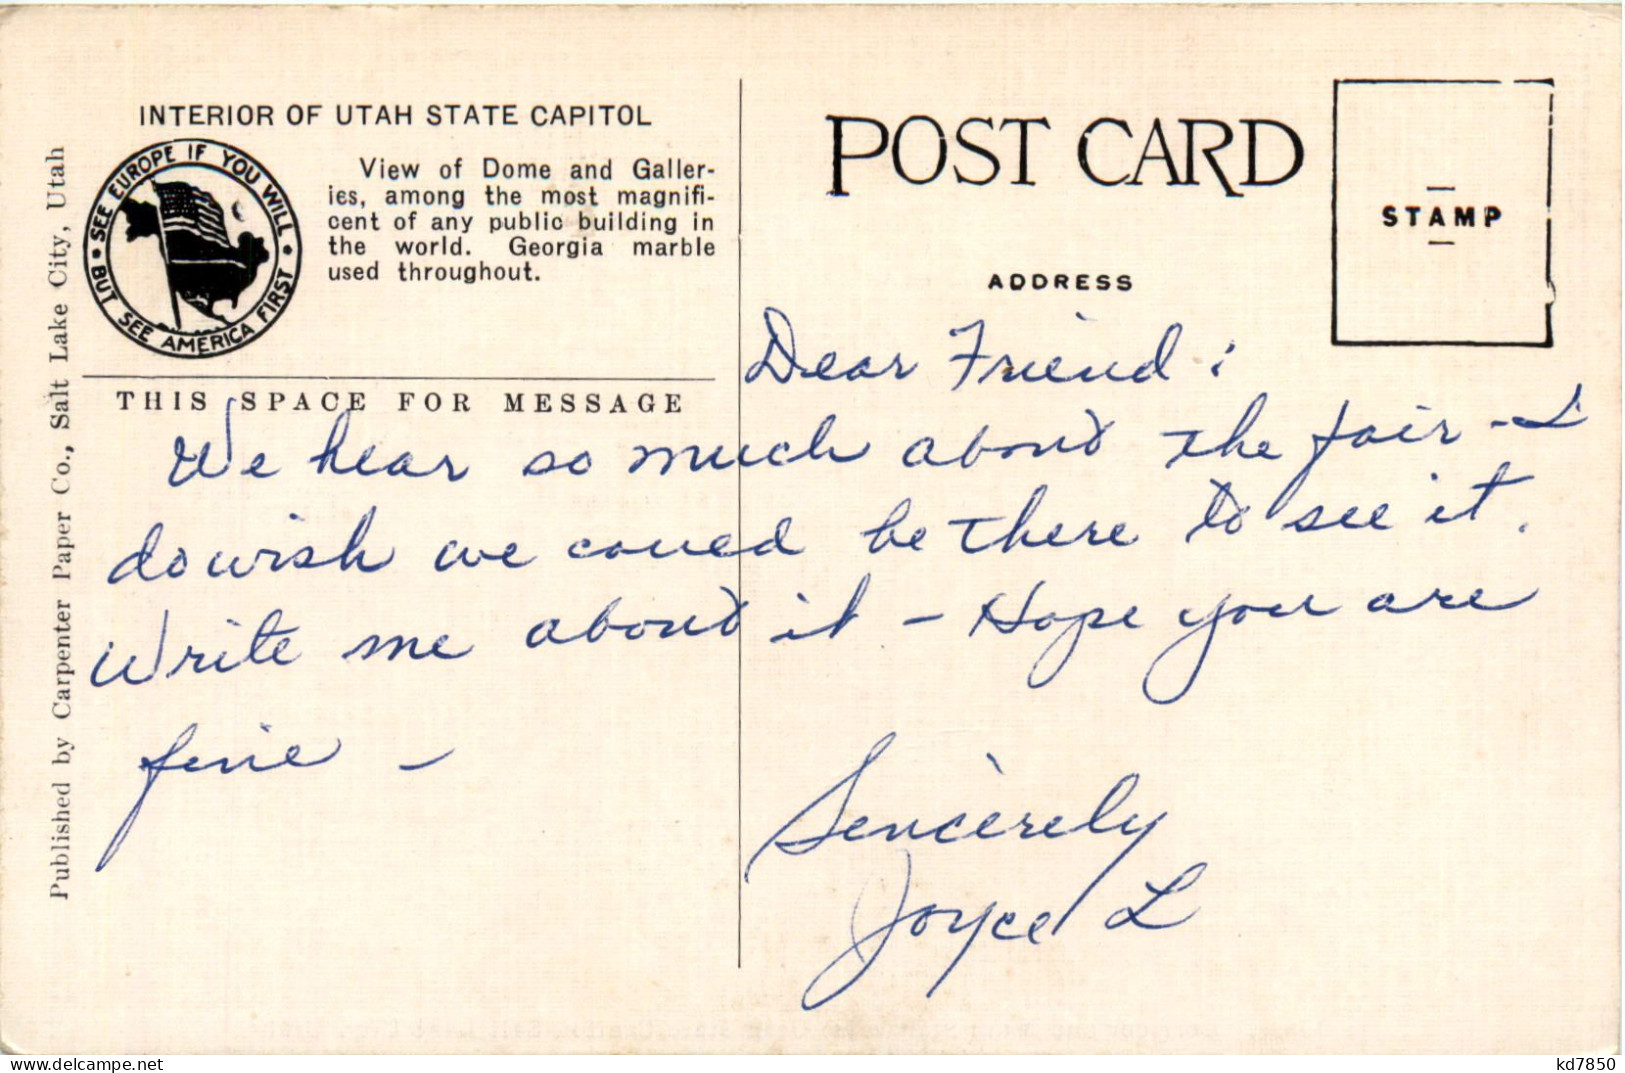 INTERIOR OF UTAH STATE CAPITOL
SEE EUROPE IF YOU WILL
BUT SEE AMERICA FIRST
View of Dome and Galler-
ies, among the most magnifi-
cent of any public building in
the world. Georgia marble
used throughout.
THIS SPACE FOR MESSAGE
Published by Carpenter Paper Co., Salt Lake City, Utah
POST CARD
STAMP
ADDRESS
Dear Friend:
We hear so much about the fair - I
do wish we could be there to see it.
Write me about it - Hope you are
fine -
Sincerely
Joyce L
kd7850